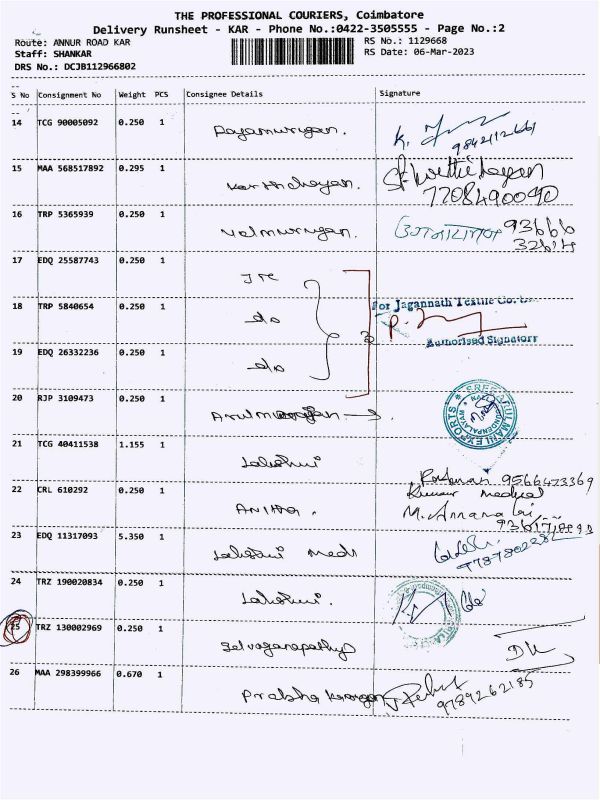 THE PROFESSIONAL COURIERS, Coimbatore
Delivery Runsheet - KAR - Phone No.:0422-3505555 - Page No.:2
Route: ANNUR ROAD KAR
RS No.: 1129668
Staff: SHANKAR
RS Date: 06-Mar-2023
DRS No.: DCJB112966802
S No Consignment No Weight PCS Consignee Details Signature
14 TCG 90005092 0.250 1
15 MAA 568517892 0.295 1 Karthikeyan.
7708490090
16 TRP 5365939 0.250 1 Velmurugan.
93666
17 EDQ 25587743 0.250 1 JTC
18 TRP 5840654 0.250 1 do
For Jagannath Textile Co.
Authorised Signatory
19 EDQ 26332236 0.250 1 do
20 RJP 3109473 0.250 1
SREE ARULMANI EXPORTS
21 TCG 40411538 1.155 1 Lakshmi
9566473369
22 CRL 610292 0.250 1 Anitha.
Kumar medical
M. Annamalai
23 EDQ 11317093 5.350 1 Lakshmi Medi
9787802282
24 TRZ 190020834 0.250 1 Lakshmi.
25 TRZ 130002969 0.250 1 Selvaganapathy
26 MAA 298399966 0.670 1 Prabha
9789262185